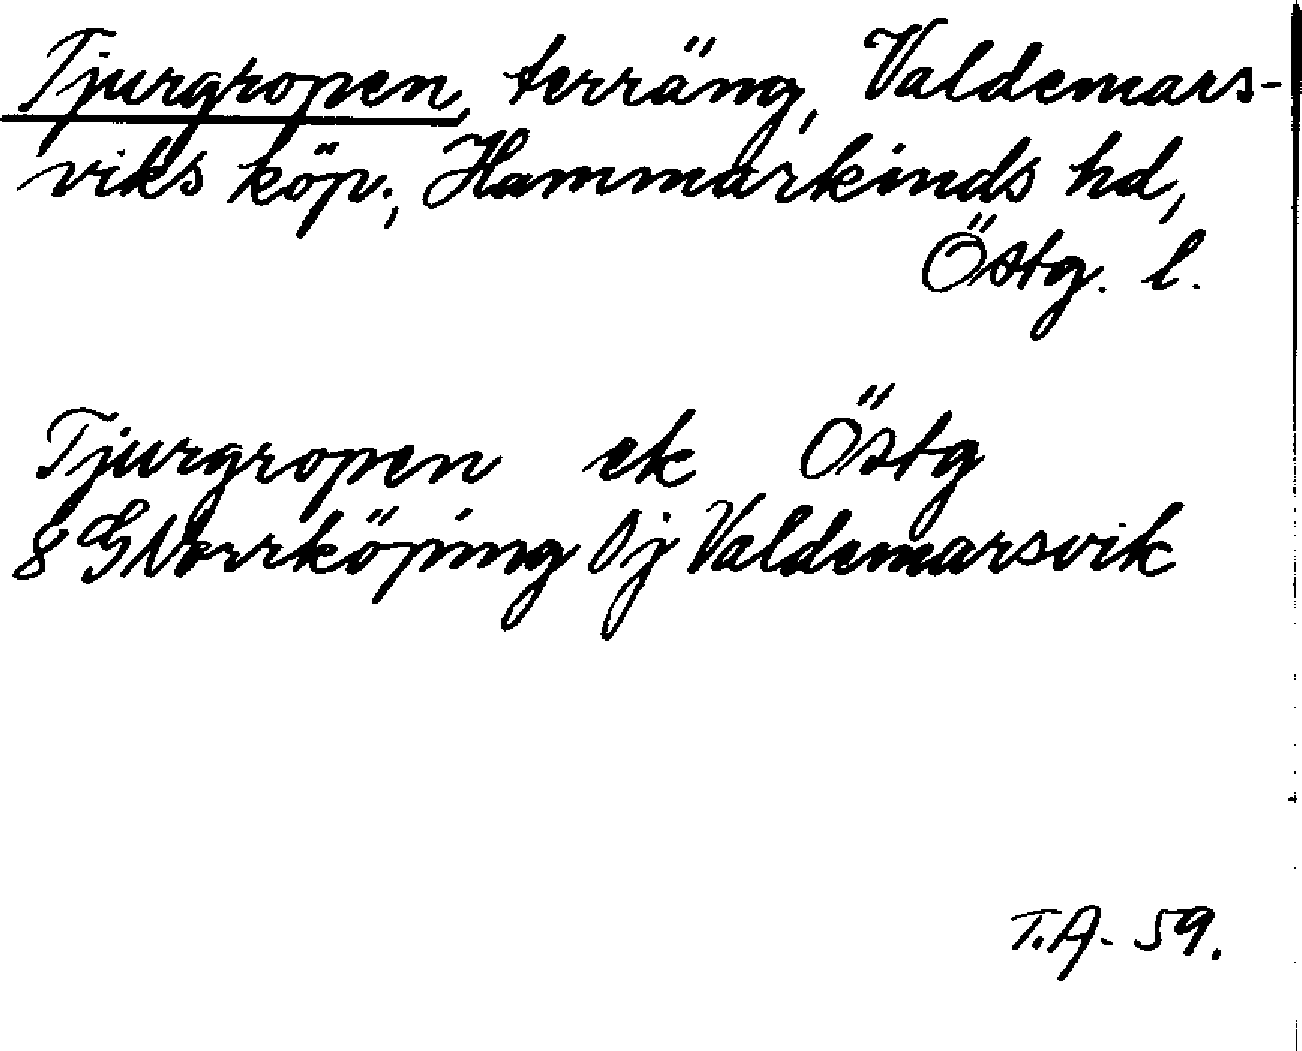 Tjurgropen, terräng, Valdemars-
viks köp., Hammarkinds hd,
Östg. l.
Tjurgropen ek Östg
8 G Norrköping 0 j Valdemarsvik
T.A. 59.